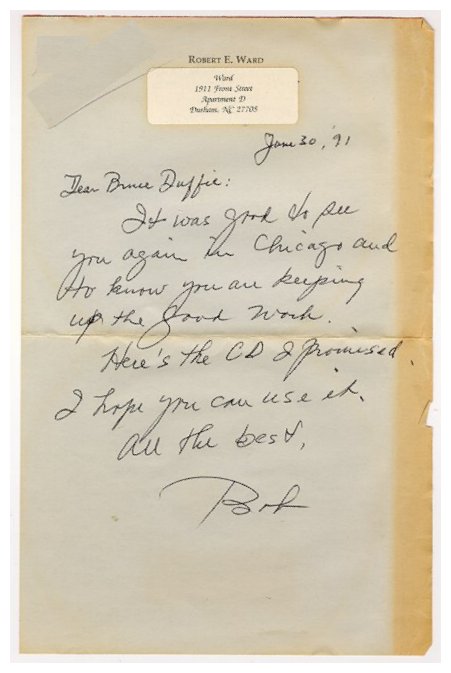 ROBERT E. WARD
Ward
1911 Front Street
Apartment D
Durham, NC 27705
June 30, '91
Dear Bruce Duffie:
It was good to see
you again in Chicago and
to know you are keeping
up the good work.
Here's the CD I promised.
I hope you can use it.
All the best,
Bob